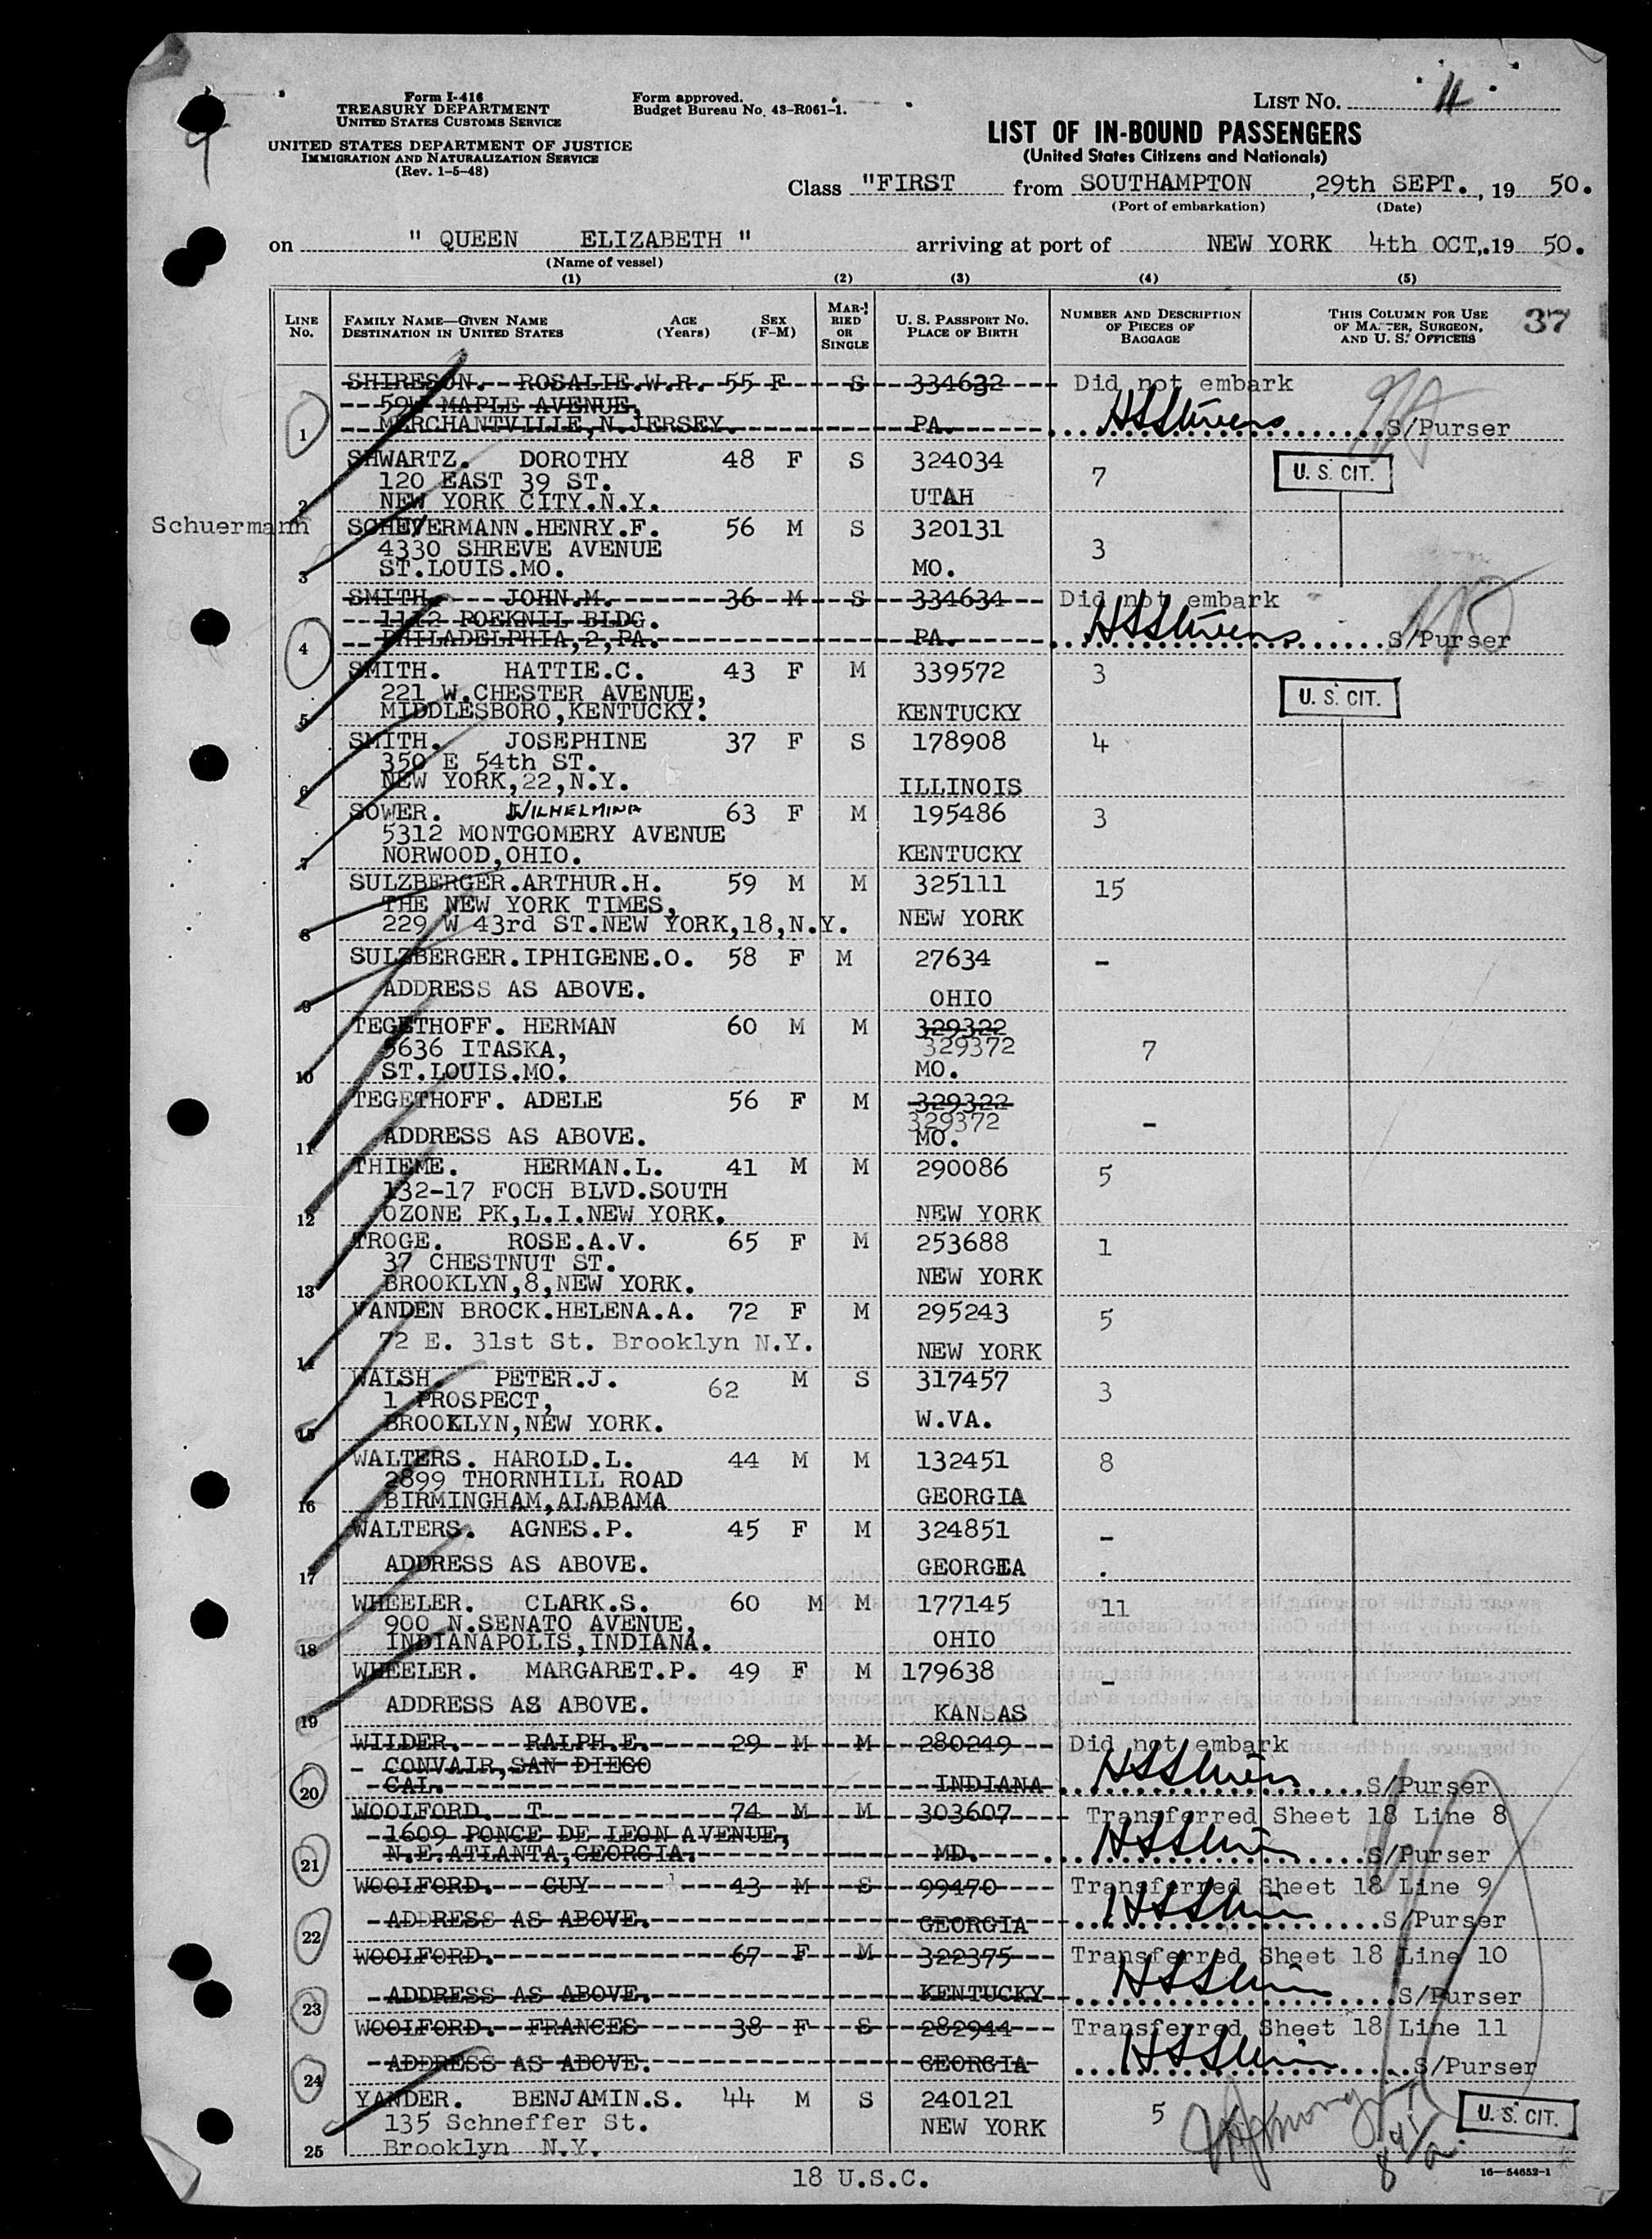 Form I-416
TREASURY DEPARTMENT
UNITED STATES CUSTOMS SERVICE
UNITED STATES DEPARTMENT OF JUSTICE
IMMIGRATION AND NATURALIZATION SERVICE
(Rev. 1-5-48)
Form approved.
Budget Bureau No. 43-R061-1.
LIST NO. 11
9
LIST OF IN-BOUND PASSENGERS
(United States Citizens and Nationals)
Class "FIRST from SOUTHAMPTON , 29th SEPT. , 19 50.
(Port of embarkation) (Date)
on " QUEEN ELIZABETH " arriving at port of NEW YORK 4th OCT,. 19 50.
(Name of vessel)
(1) (2) (3) (4) (5)
LINE NO. FAMILY NAME—GIVEN NAME DESTINATION IN UNITED STATES AGE (Years) SEX (F-M) MARRIED OR SINGLE U. S. PASSPORT NO. PLACE OF BIRTH NUMBER AND DESCRIPTION OF PIECES OF BAGGAGE THIS COLUMN FOR USE OF MASTER, SURGEON, AND U. S. OFFICERS 37
SHIRESON. ROSALIE.W.R. 55 F S 334632 Did not embark
59W MAPLE AVENUE,
1 MERCHANTVILLE,N.JERSEY. PA. S/Purser
SHWARTZ. DOROTHY 48 F S 324034 7 U. S. CIT.
120 EAST 39 ST.
2 NEW YORK CITY.N.Y. UTAH
Schuermann SCHEVERMANN.HENRY.F. 56 M S 320131 3
4330 SHREVE AVENUE
3 ST.LOUIS.MO. MO.
SMITH. JOHN.M. 36 M S 334634 Did not embark
1112 POEKNIL BLDG.
4 PHILADELPHIA,2,PA. PA. S/Purser
SMITH. HATTIE.C. 43 F M 339572 3 U. S. CIT.
221 W.CHESTER AVENUE,
5 MIDDLESBORO,KENTUCKY. KENTUCKY
SMITH. JOSEPHINE 37 F S 178908 4
350 E 54th ST.
6 NEW YORK,22,N.Y. ILLINOIS
SOWER. WILHELMINA 63 F M 195486 3
5312 MONTGOMERY AVENUE
7 NORWOOD,OHIO. KENTUCKY
SULZBERGER.ARTHUR.H. 59 M M 325111 15
THE NEW YORK TIMES,
8 229 W 43rd ST.NEW YORK,18,N.Y. NEW YORK
SULZBERGER.IPHIGENE.O. 58 F M 27634 -
9 ADDRESS AS ABOVE. OHIO
TEGETHOFF. HERMAN 60 M M 329322
5636 ITASKA, 329372 7
10 ST.LOUIS.MO. MO.
TEGETHOFF. ADELE 56 F M 329322
329372 -
11 ADDRESS AS ABOVE. MO.
THIEME. HERMAN.L. 41 M M 290086 5
132-17 FOCH BLVD.SOUTH
12 OZONE PK,L.I.NEW YORK. NEW YORK
TROGE. ROSE.A.V. 65 F M 253688 1
37 CHESTNUT ST.
13 BROOKLYN,8,NEW YORK. NEW YORK
VANDEN BROCK.HELENA.A. 72 F M 295243 5
14 72 E. 31st St. Brooklyn N.Y. NEW YORK
WALSH. PETER.J. 62 M S 317457 3
1 PROSPECT,
15 BROOKLYN,NEW YORK. W.VA.
WALTERS. HAROLD.L. 44 M M 132451 8
2899 THORNHILL ROAD
16 BIRMINGHAM,ALABAMA GEORGIA
WALTERS. AGNES.P. 45 F M 324851 -
17 ADDRESS AS ABOVE. GEORGIA
WHEELER. CLARK.S. 60 M M 177145 11
900 N.SENATO AVENUE,
18 INDIANAPOLIS,INDIANA. OHIO
WHEELER. MARGARET.P. 49 F M 179638 -
19 ADDRESS AS ABOVE. KANSAS
WILDER. RALPH.E. 29 M M 280249 Did not embark
CONVAIR,SAN DIEGO
20 CAL. INDIANA S/Purser
WOOLFORD. T 74 M M 303607 Transferred Sheet 18 Line 8
1609 PONCE DE LEON AVENUE,
21 N.E.ATLANTA,GEORGIA. MD. S/Purser
WOOLFORD. GUY 43 M S 99470 Transferred Sheet 18 Line 9
22 ADDRESS AS ABOVE. GEORGIA S/Purser
WOOLFORD. 67 F M 322375 Transferred Sheet 18 Line 10
23 ADDRESS AS ABOVE. KENTUCKY S/Purser
WOOLFORD. FRANCES 38 F S 282944 Transferred Sheet 18 Line 11
24 ADDRESS AS ABOVE. GEORGIA S/Purser
YANDER. BENJAMIN.S. 44 M S 240121 5 U. S. CIT.
135 Schneffer St. NEW YORK
25 Brooklyn N.Y.
18 U.S.C.
16—54652-1